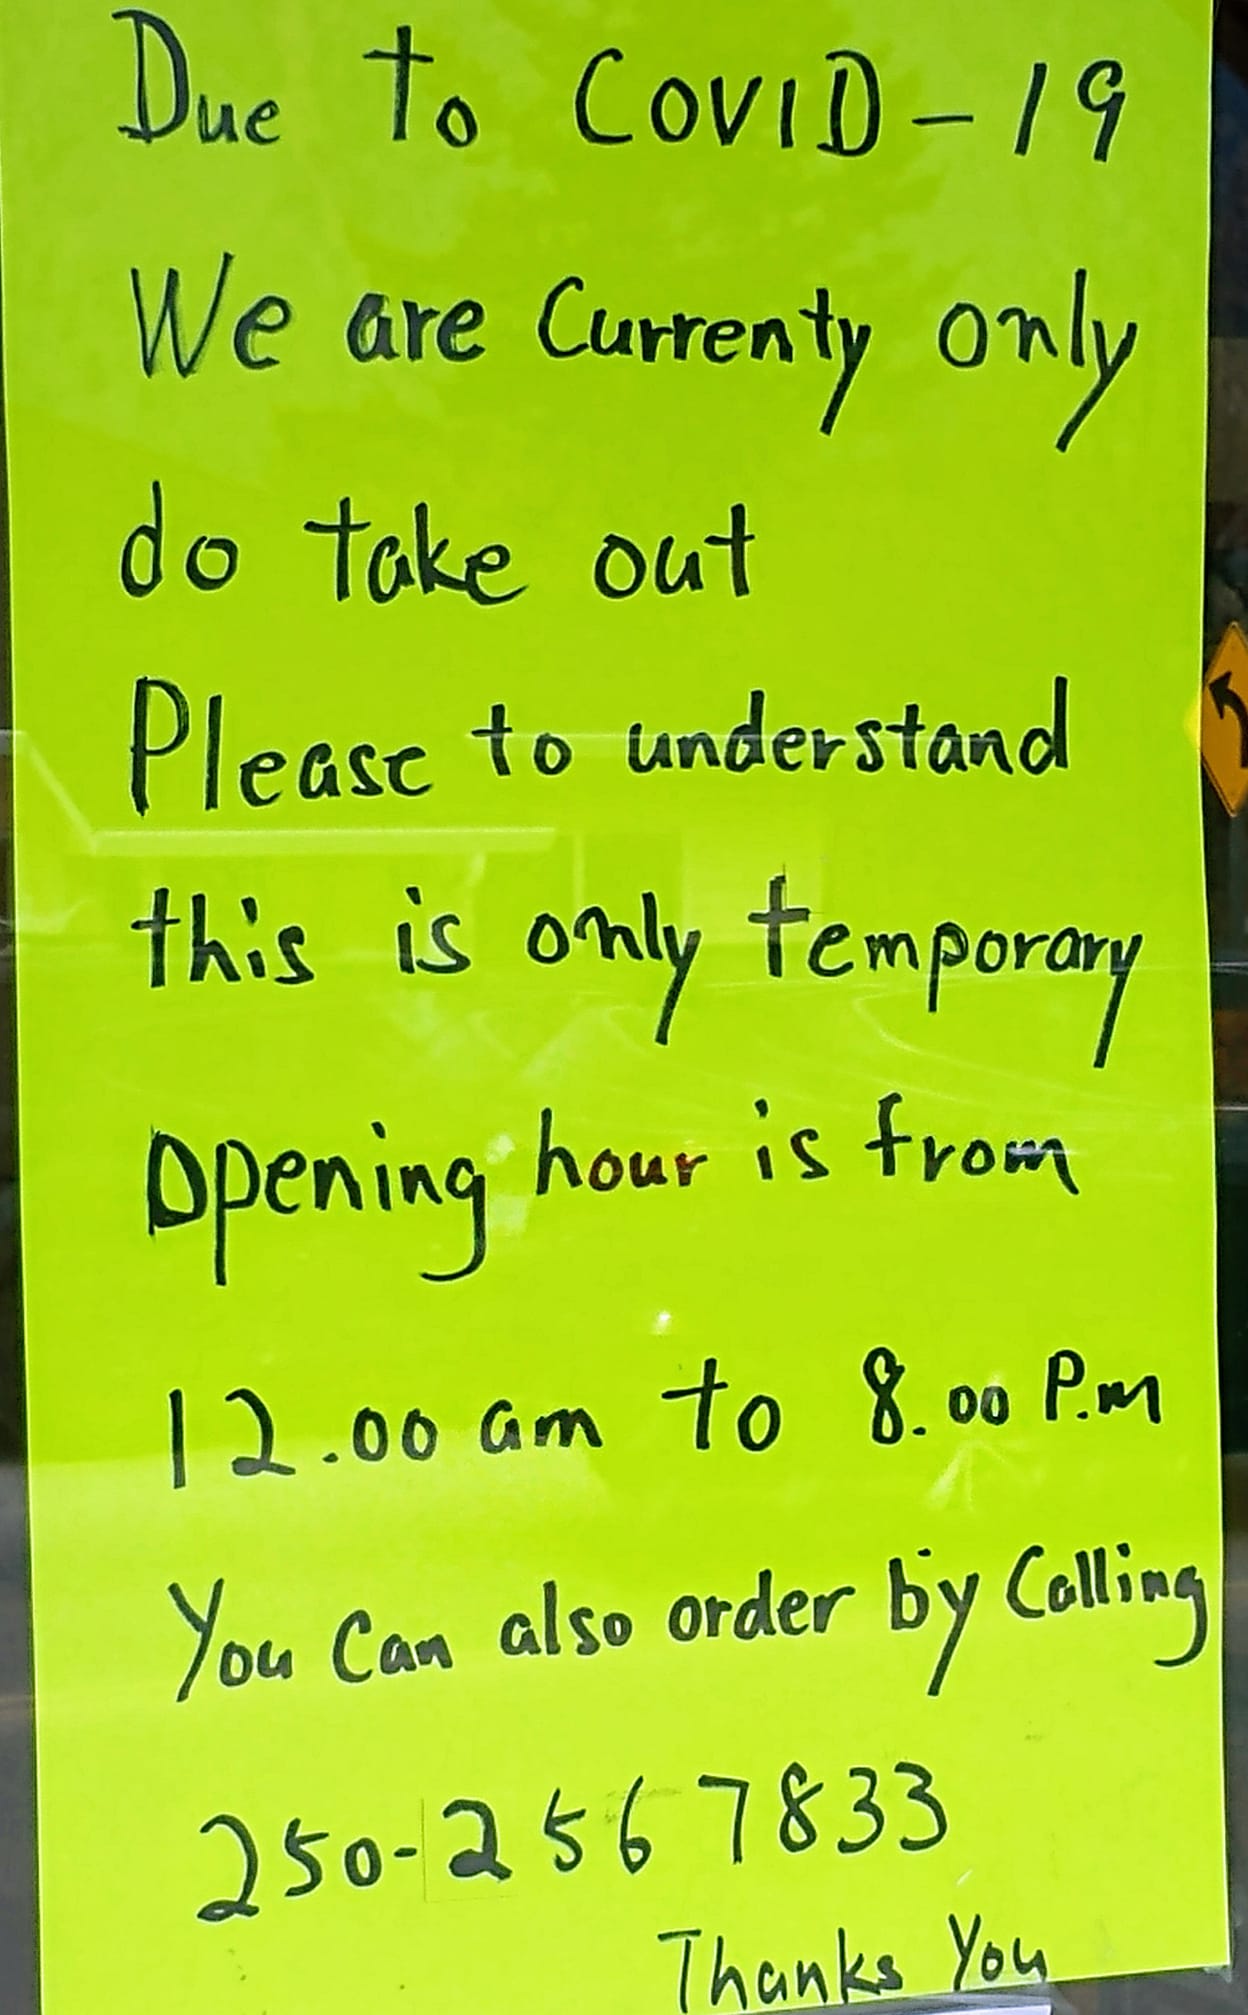 Due to COVID-19
We are Currenty only
do take out
Please to understand
this is only temporary
Opening hour is from
12.00 am to 8.00 P.m
You Can also order by Calling
250-256 7833
Thanks You